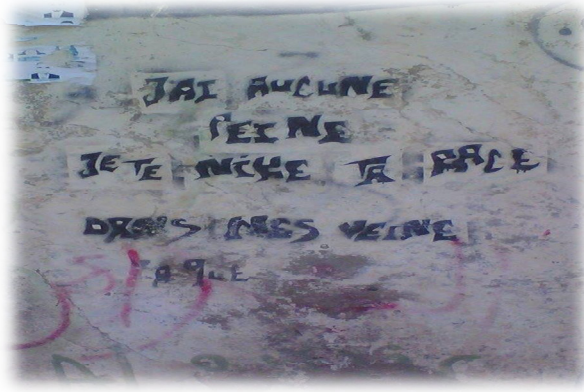 JAI AUCUNE
PEINE
JE TE NIKE TA RACE
DANS MES VEINE